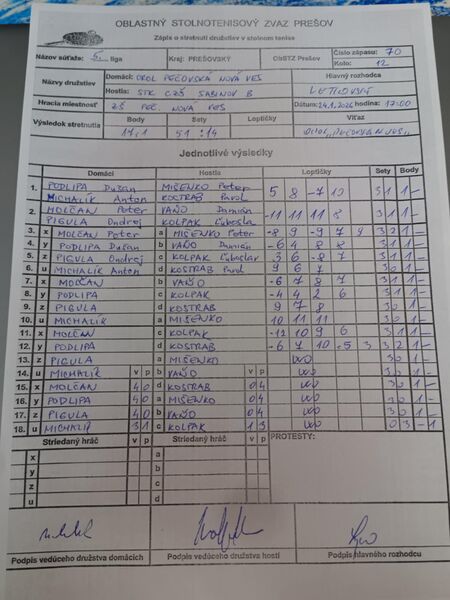 OBLASTNÝ STOLNOTENISOVÝ ZVAZ PREŠOV
Zápis o stretnutí družstiev v stolnom tenise
Názov súťaže: 5. liga Kraj: PREŠOVSKÝ ObSTZ Prešov Číslo zápasu: 70
Kolo: 12
Názvy družstiev Domáci: OROL PEČOVSKÁ NOVÁ VES Hlavný rozhodca
Hostia: STK CZŠ SABINOV B
Hracia miestnosť ZŠ PEČ. NOVÁ VES Dátum: 24.1.2026 hodina: 17:00
Výsledok stretnutia Body Sety Loptičky Víťaz
17:1 51:14
Jednotlivé výsledky
Domáci Hostia Loptičky Sety Body
1. PODLIPA Dušan MIŠENKO Peter 5 8 -7 10 3 1 1 -
MICHALÍK Anton KOSTRAB Pavol
2. MOLČAN Peter VAŇO Damián -11 11 11 8 3 1 1 -
PIGULA Ondrej KOLPAK Ľuboslav
3. x MOLČAN Peter a MIŠENKO Peter -8 9 -9 7 9 3 2 1 -
4. y PODLIPA Dušan b VAŇO Damián -6 4 8 8 3 1 1 -
5. z PIGULA Ondrej c KOLPAK Ľuboslav 3 6 -8 7 3 1 1 -
6. u MICHALÍK Anton d KOSTRAB Pavol 9 6 7 3 0 1 -
7. x MOLČAN b VAŇO -6 7 8 7 3 1 1 -
8. y PODLIPA c KOLPAK -4 4 2 6 3 1 1 -
9. z PIGULA d KOSTRAB 9 7 8 3 0 1 -
10. u MICHALÍK a MIŠENKO 10 11 11 3 0 1 -
11. x MOLČAN c KOLPAK -12 10 9 6 3 1 1 -
12. y PODLIPA d KOSTRAB -6 7 10 -5 3 3 2 1 -
13. z PIGULA a MIŠENKO WO 3 0 1 -
14. u MICHALÍK v p b VAŇO v p WO 3 0 1 -
15. x MOLČAN 4 0 d KOSTRAB 0 4 WO 3 0 1 -
16. y PODLIPA 4 0 a MIŠENKO 0 4 WO 3 0 1 -
17. z PIGULA 4 0 b VAŇO 0 4 WO 3 0 1 -
18. u MICHALÍK 3 1 c KOLPAK 1 3 WO 0 3 - 1
Striedaný hráč v p Striedaný hráč v p PROTESTY:
x a
y b
z c
u d
Podpis vedúceho družstva domácich Podpis vedúceho družstva hostí Podpis hlavného rozhodcu